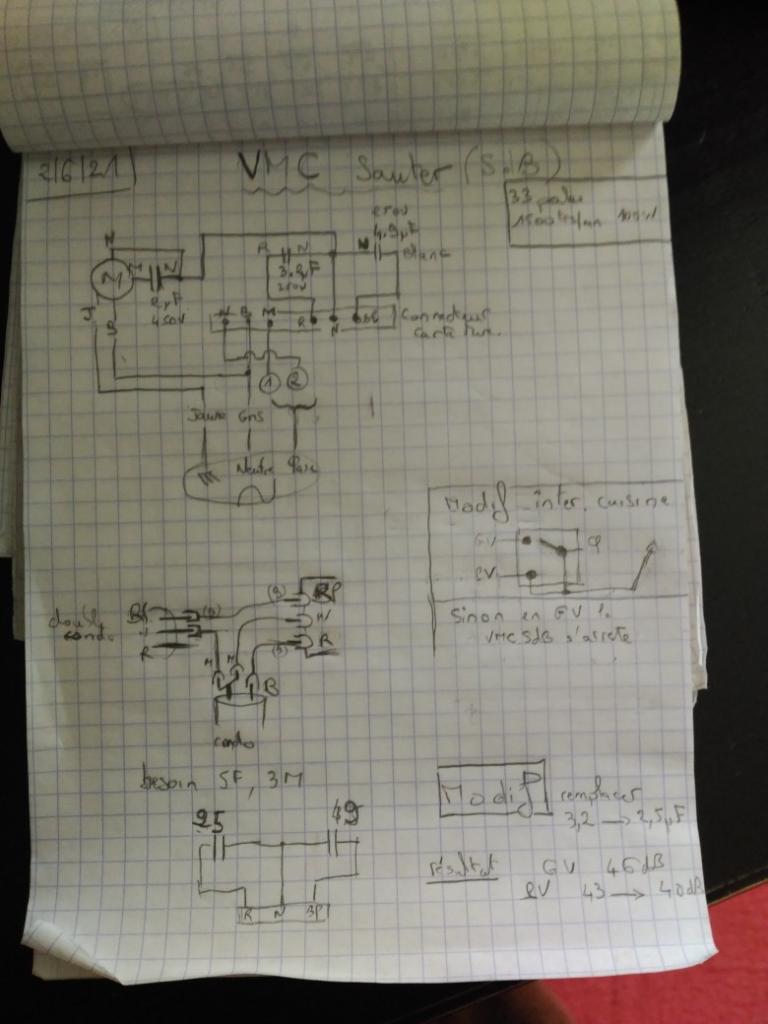 2/6/21
VMC Sauter (SdB)
33
1500 trs/mn 100W
N
250V
4.9µF
Blanc
R N
3.2µF
250V
M
M N
2µF
450V
J
B
N B M R N
Connecteur
carte
1 2
Jaune Gris
Neutre Phase
Modif inter. cuisine
GV
PV
Sinon en GV la
VMC SdB s'arrete
double
condo
N
R
BP
N
R
M M B
condo
besoin 5F, 3M
25 49
R N BP
Modif
remplacer
3,2 → 2,5µF
résultat GV 46dB
PV 43 → 40dB